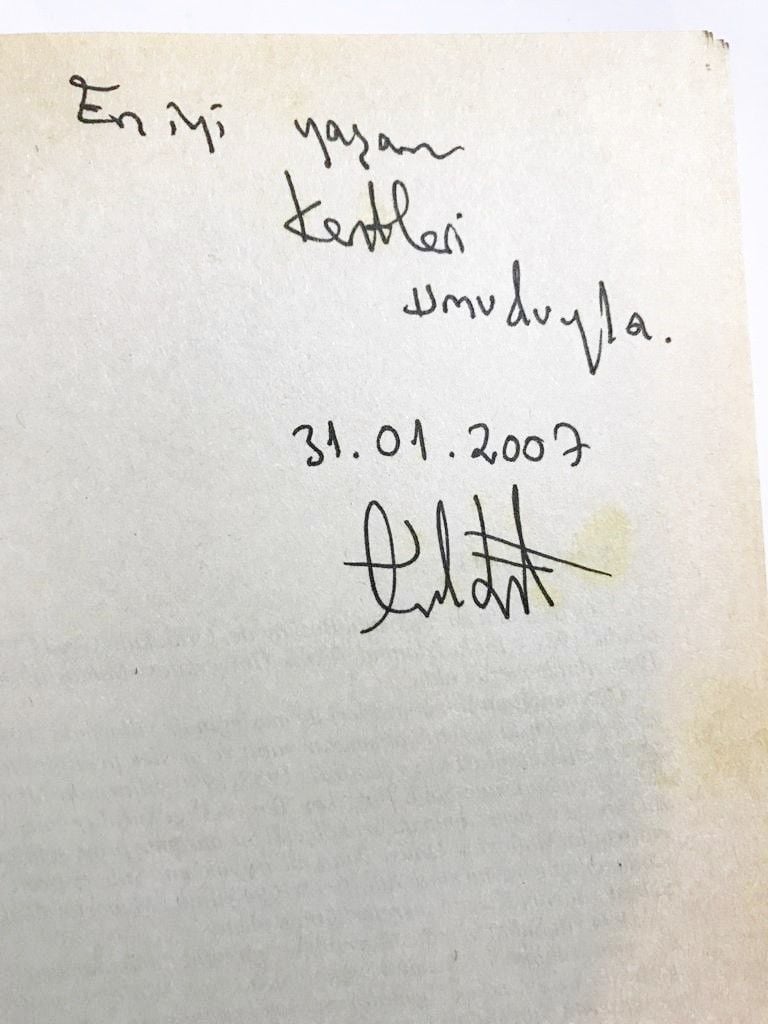 En iyi yaşam
Kentleri
umuduyla.
31.01.2007